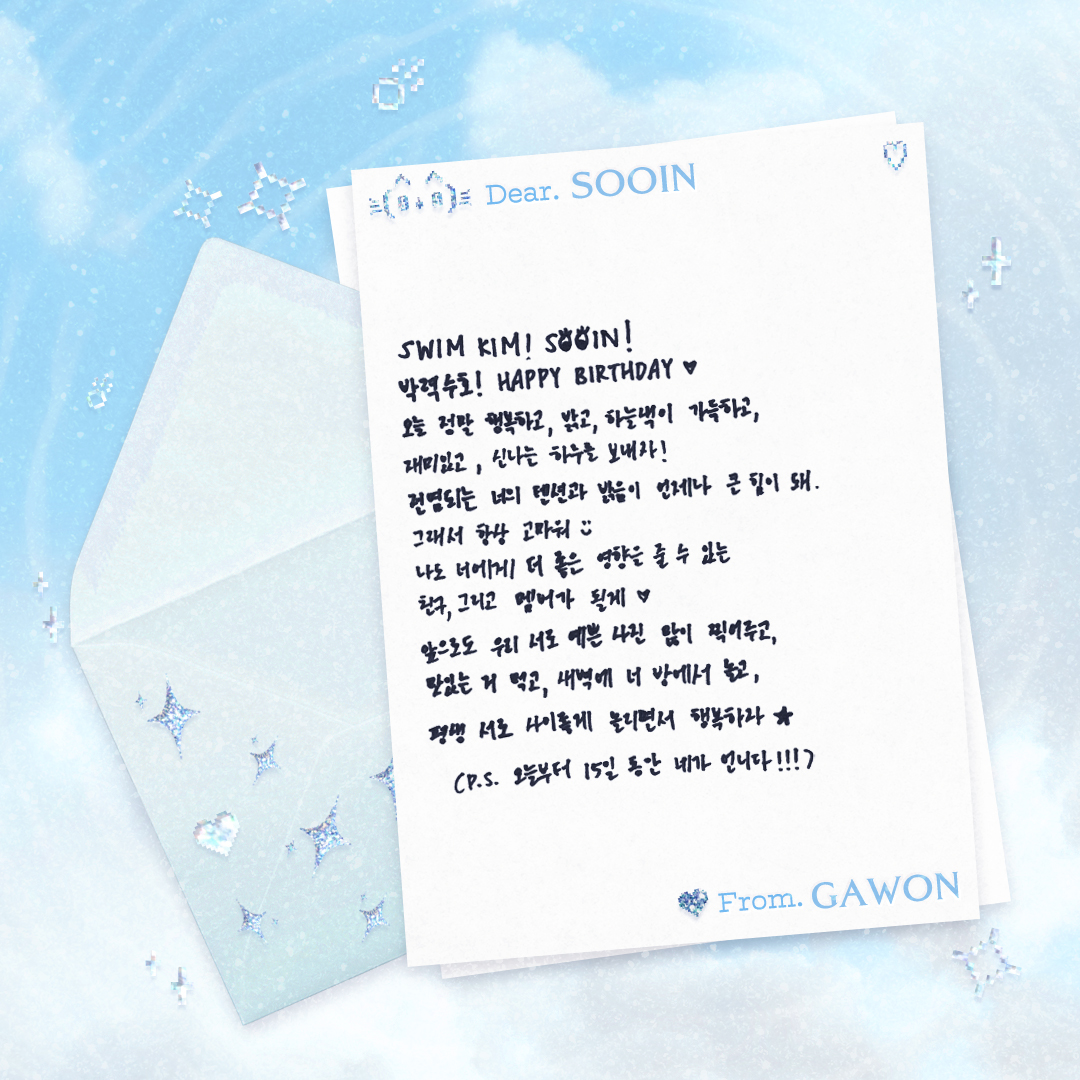 Dear. SOOIN
SWIM KIM! SOOIN!
박력수호! HAPPY BIRTHDAY ♥
오늘 정말 행복하고, 밝고, 하늘색이 가득하고,
재미있고, 신나는 하루를 보내라!
전염되는 너의 텐션과 밝음이 언제나 큰 힘이 돼.
그래서 항상 고마워 :)
나도 너에게 더 좋은 영향을 줄 수 있는
친구, 그리고 멤버가 될게 ♥
앞으로도 우리 서로 예쁜 사진 많이 찍어주고,
맛있는 거 먹고, 새벽에 너 방에서 놀고,
평생 서로 사이좋게 놀리면서 행복하라 ★
(P.S. 오늘부터 15일 동안 네가 언니다!!!)
From. GAWON